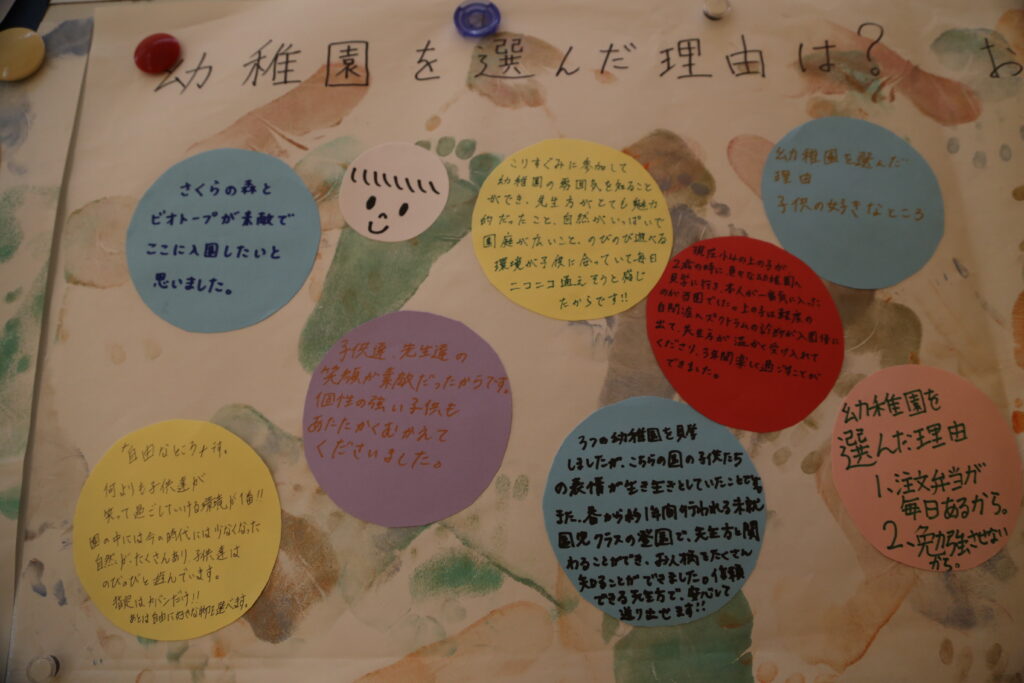 幼稚園を選んだ理由は?
お
さくらの森と
ビオトープが素敵で
ここに入園したいと
思いました。
こりすぐみに参加して
幼稚園の雰囲気を知ること
ができ、先生方がとても魅力
的だったこと、自然がいっぱいで
園庭が広いこと、のびのび遊べる
環境が子供に合っていて毎日
ニコニコ通えそうと感じ
たからです!!
幼稚園を選んだ
理由
子供の好きなところ
現在小4の上の子が
2歳の時に色々な幼稚園へ
見学に行き、本人が一番気に入った
のが当園でした。上の子は軽度の
自閉症スペクトラムの診断が入園後に
出て、先生方が温かく受け入れて
くださり、3年間楽しく過ごすことが
できました。
子供達、先生達の
笑顔が素敵だったからです。
個性の強い子供も
あたたかくむかえて
くださいました。
自由なところです。
何よりも子供達が
笑って過ごしていける環境が1番!!
園の中には今の時代には少なくなった
自然が、たくさんあり、子供達は
のびのびと遊んでいます。
指定はカバンだけ!!
あとは自由に好きな物を選べます。
3つの幼稚園を見学
しましたが、こちらの園の子供たち
の表情が生き生きとしていたことです
また、春から約1年間行われる未就
園児クラスの登園で、先生方と関
わることができ、お人柄をたくさん
知ることができました。信頼
できる先生方で、安心して
送り出せます!!
幼稚園を
選んだ理由
1、注文弁当が
毎日あるから。
2、勉強させない
から。